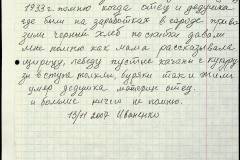 1933 г. помню когда отец и дедушка
где были на заработках в городе приво
зим черный хлеб по скибки давали
мне помню как мама рассказывала
щирицу, лебеду пустые качани с кукуру
зы в ступе толкли, буряки так и жили
умер дедушка материн отец.
и больше ничего не помню.
13/XI 2007 Иваненко